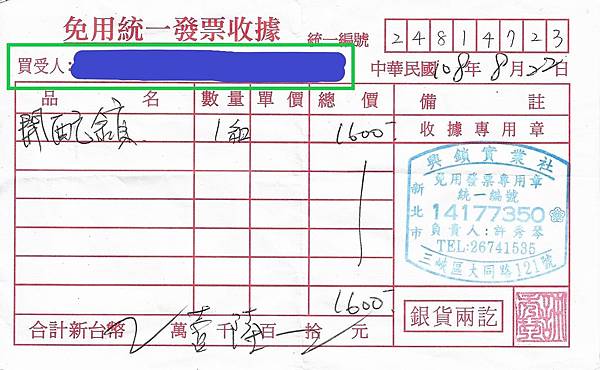 免用統一發票收據
統一編號 24814723
買受人:
中華民國108年8月22日
品 名 數量 單價 總價 備註
開配鎖 1組 1600
收據專用章
興鎖實業社
免用發票專用章
統一編號
新北市 14177350
負責人:許秀琴
TEL:26741535
三峽區大同路121號
1600
合計新台幣 萬壹千陸百 拾 元
銀貨兩訖